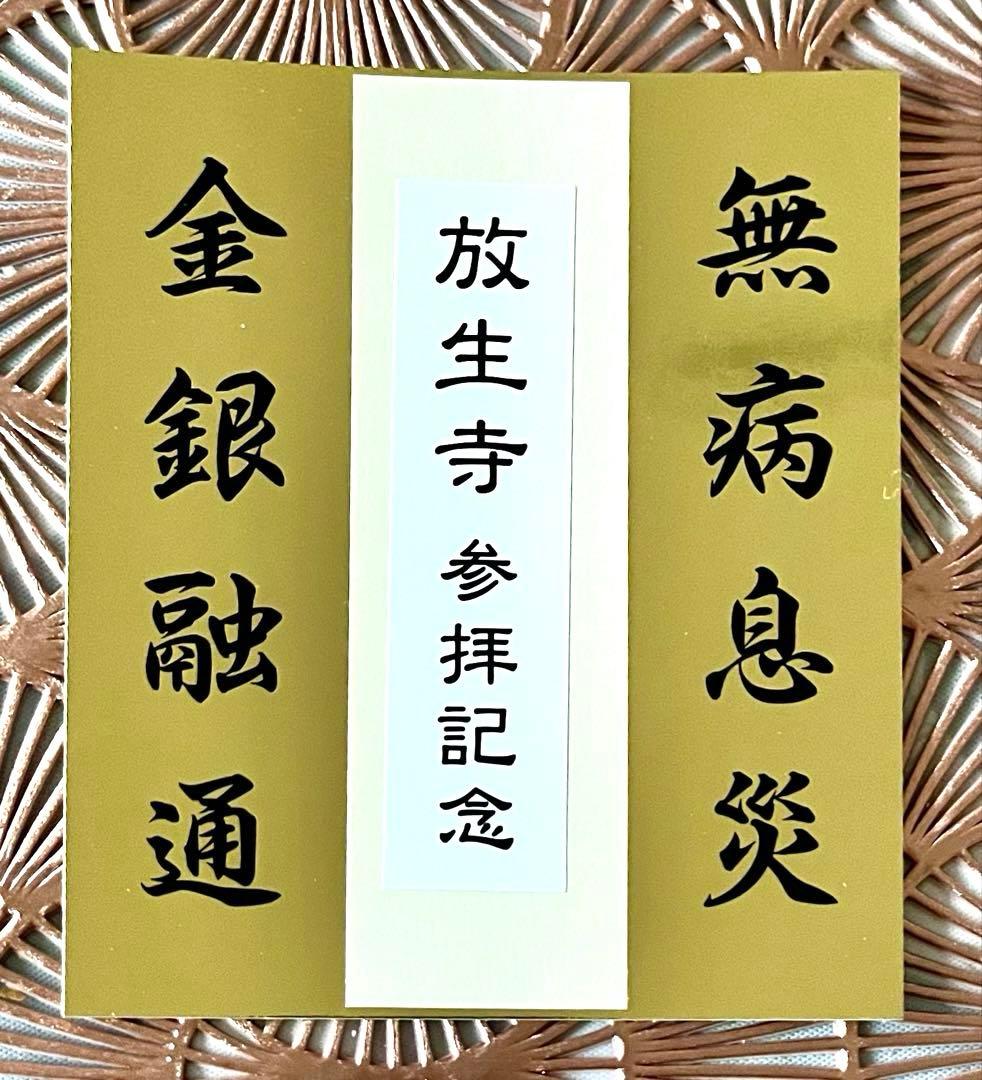 無病息災
放生寺 参拝記念
金銀融通